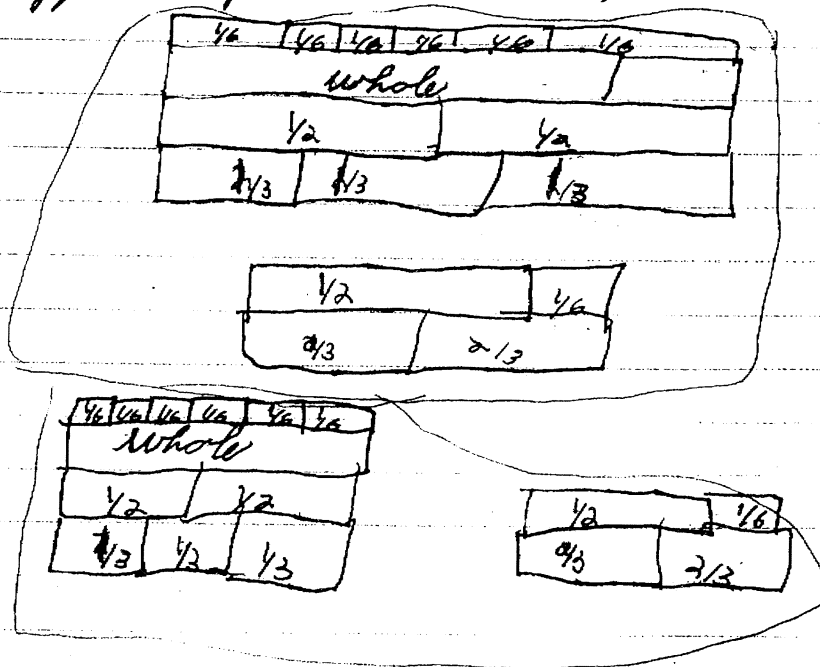 1/6 1/6 1/6 1/6 1/6 1/6
whole
1/2 1/2
1/3 1/3 1/3
1/2 1/6
2/3 2/3
1/6 1/6 1/6 1/6 1/6 1/6
whole
1/2 1/2
1/3 1/3 1/3
1/2 1/6
2/3 2/3